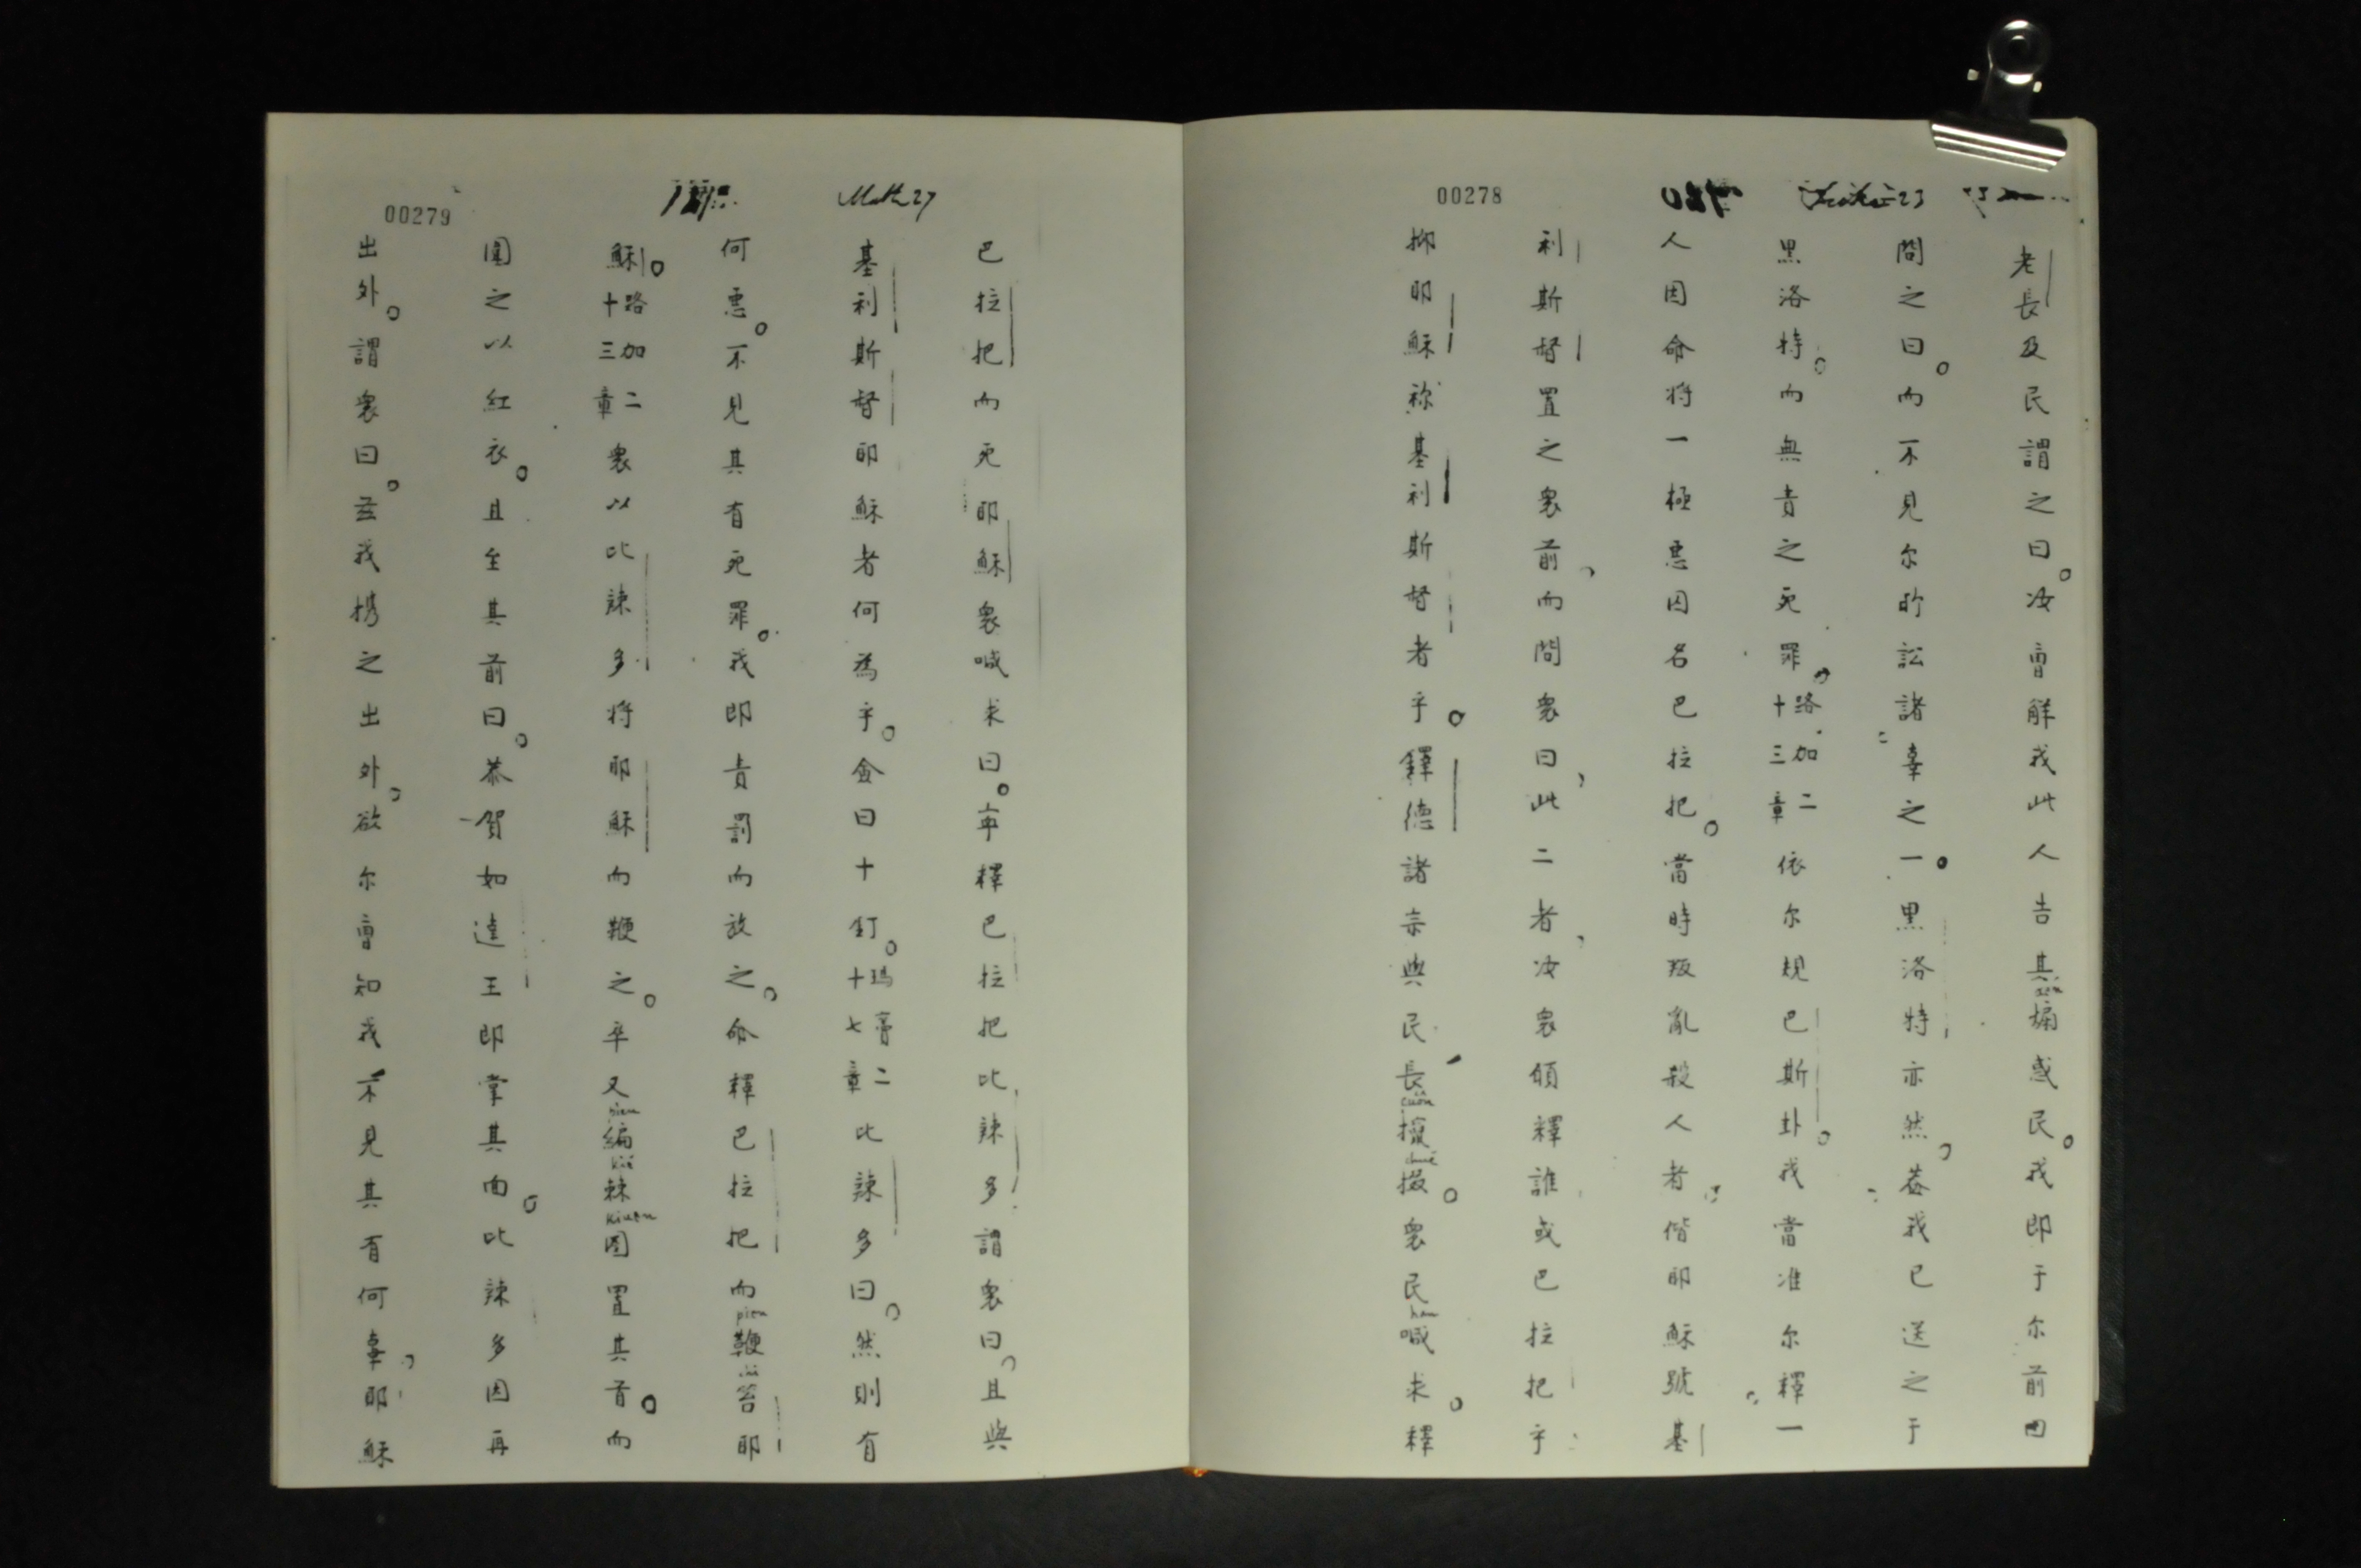 00278
老長及民謂之曰。汝曹觧我此人告其煽惑民。我即于尔前因
問之曰。而不見尔所訟諸辜之一。黒洛特亦然。葢我已送之于
黒洛特。而無責之死罪。路加二十三章依尔規巴斯卦。我當准尔釋一
人因命将一極悪囚名巴拉把。當時叛亂殺人者。偕耶穌號基
利斯督置之衆前，而問衆曰，此二者，汝衆傾釋誰或巴拉把乎
抑耶穌称基利斯督者乎。鐸德諸宗與民長攛掇。衆民喊求。釋
00279
Matth 27
巴拉把而死耶穌衆喊求曰。寧釋巴拉把比辣多謂衆曰。且與
基利斯督耶穌者何為乎。僉曰十釘。瑪竇二十七章比辣多曰。然則有
何悪。不見其有死罪。我即責罰而放之。命釋巴拉把而鞭笞耶
穌。路加二十三章衆以比辣多将耶穌而鞭之。卒又編棘圈置其首。而
圍之以紅衣。且至其前曰。恭賀如達王即掌其面。比辣多因再
出外。謂衆曰。兹我携之出外。欲尔曹知我不見其有何辜。耶穌